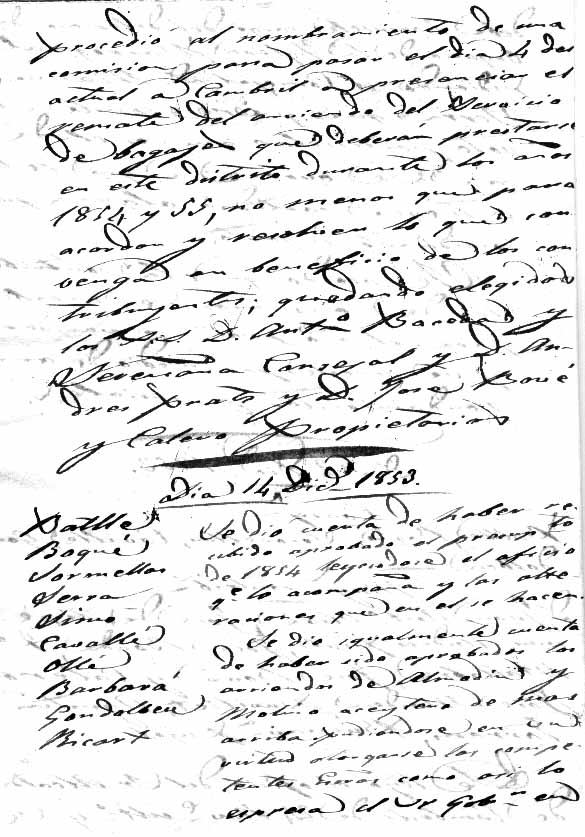 procedió al nombramiento de una
comision para pasar el dia 4 del
actual a Cambril a presenciar el
remate del arriendo del Servicio
de bagajes que deberán prestarse
en este distrito durante los años
1854 y 55, no menos que para
acordar y resolver lo que con
venga en beneficio de los con
tribuyentes; quedando elegidos
los D. Antº y
Consejal y D. An-
dres Prats y D. José Boxé
y Calero Propietarios
Dia 14 Dicᵉ 1853.
Batlle
Boqué
Sormellas
Serra
Simo
Cavallé
Ollé
Barbará
Gondolbeu
Ricart
Se dio cuenta de haber re-
cibido aprobado el presupᵗᵒ
de 1854 leyendose el oficio
qᵉ lo acompaña y las alte-
raciones que en el se hacen.
Se dio igualmente cuenta
de haber sido aprobados los
arriendos de Almodin y
Molino aceytero de mas
arriba pudiendose en su
virtud otorgarse las compe-
tentes como asi lo
espresa el Sr Gobᵒʳ en